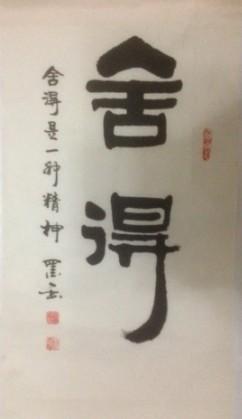 舍得
舍得是一种精神